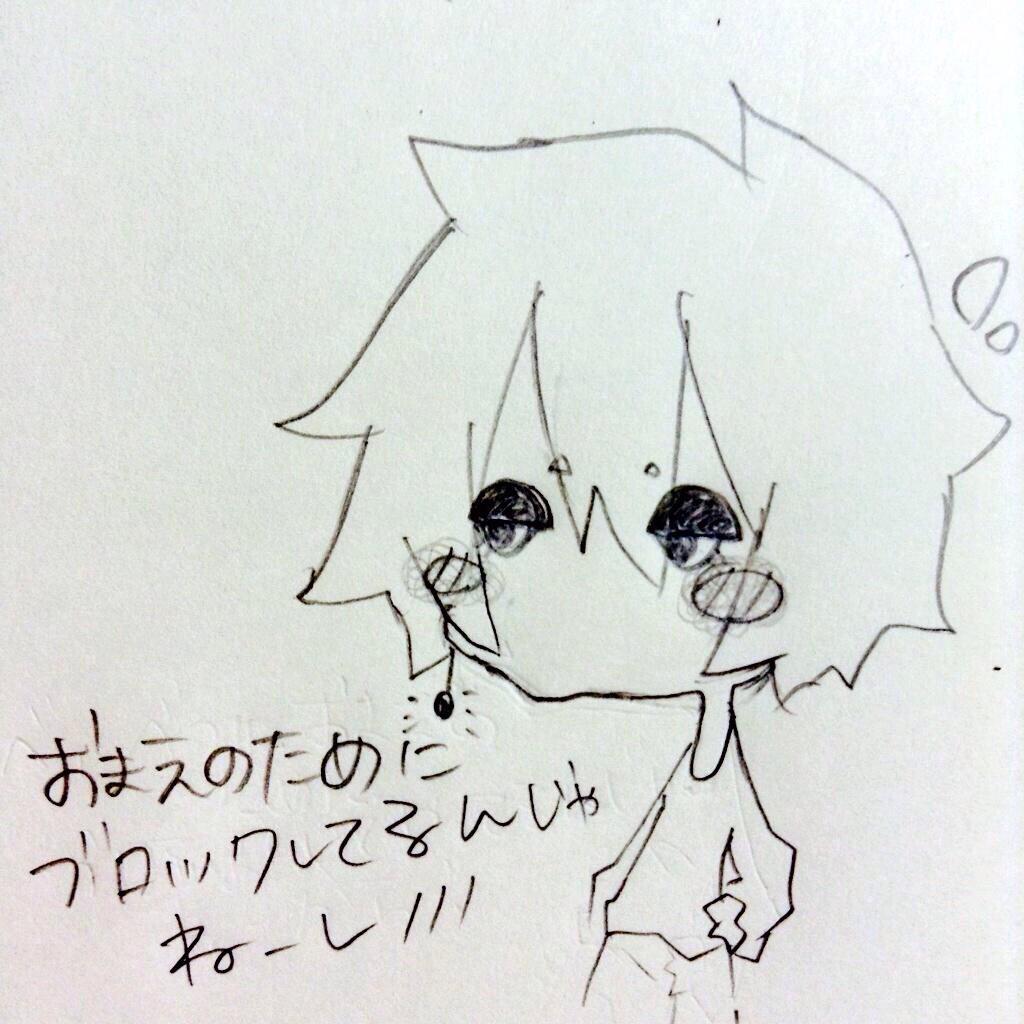 おまえのために
ブロックしてるんじゃ
ねーし!!!